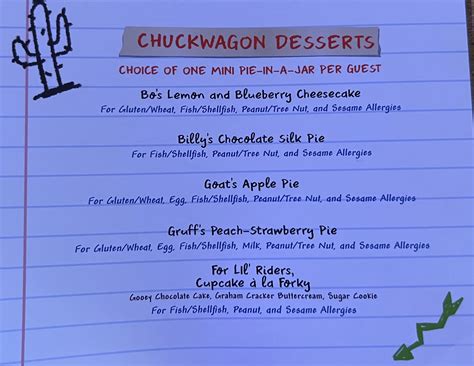 CHUCKWAGON DESSERTS
CHOICE OF ONE MINI PIE-IN-A-JAR PER GUEST
Bo's Lemon and Blueberry Cheesecake
For Gluten/Wheat, Fish/Shellfish, Peanut/Tree Nut, and Sesame Allergies
Billy's Chocolate Silk Pie
For Fish/Shellfish, Peanut/Tree Nut, and Sesame Allergies
Goat's Apple Pie
For Gluten/Wheat, Egg, Fish/Shellfish, Peanut/Tree Nut, and Sesame Allergies
Gruff's Peach-Strawberry Pie
For Gluten/Wheat, Egg, Fish/Shellfish, Milk, Peanut/Tree Nut, and Sesame Allergies
For Lil' Riders,
Cupcake à la Forky
Gooey Chocolate Cake, Graham Cracker Buttercream, Sugar Cookie
For Fish/Shellfish, Peanut, and Sesame Allergies